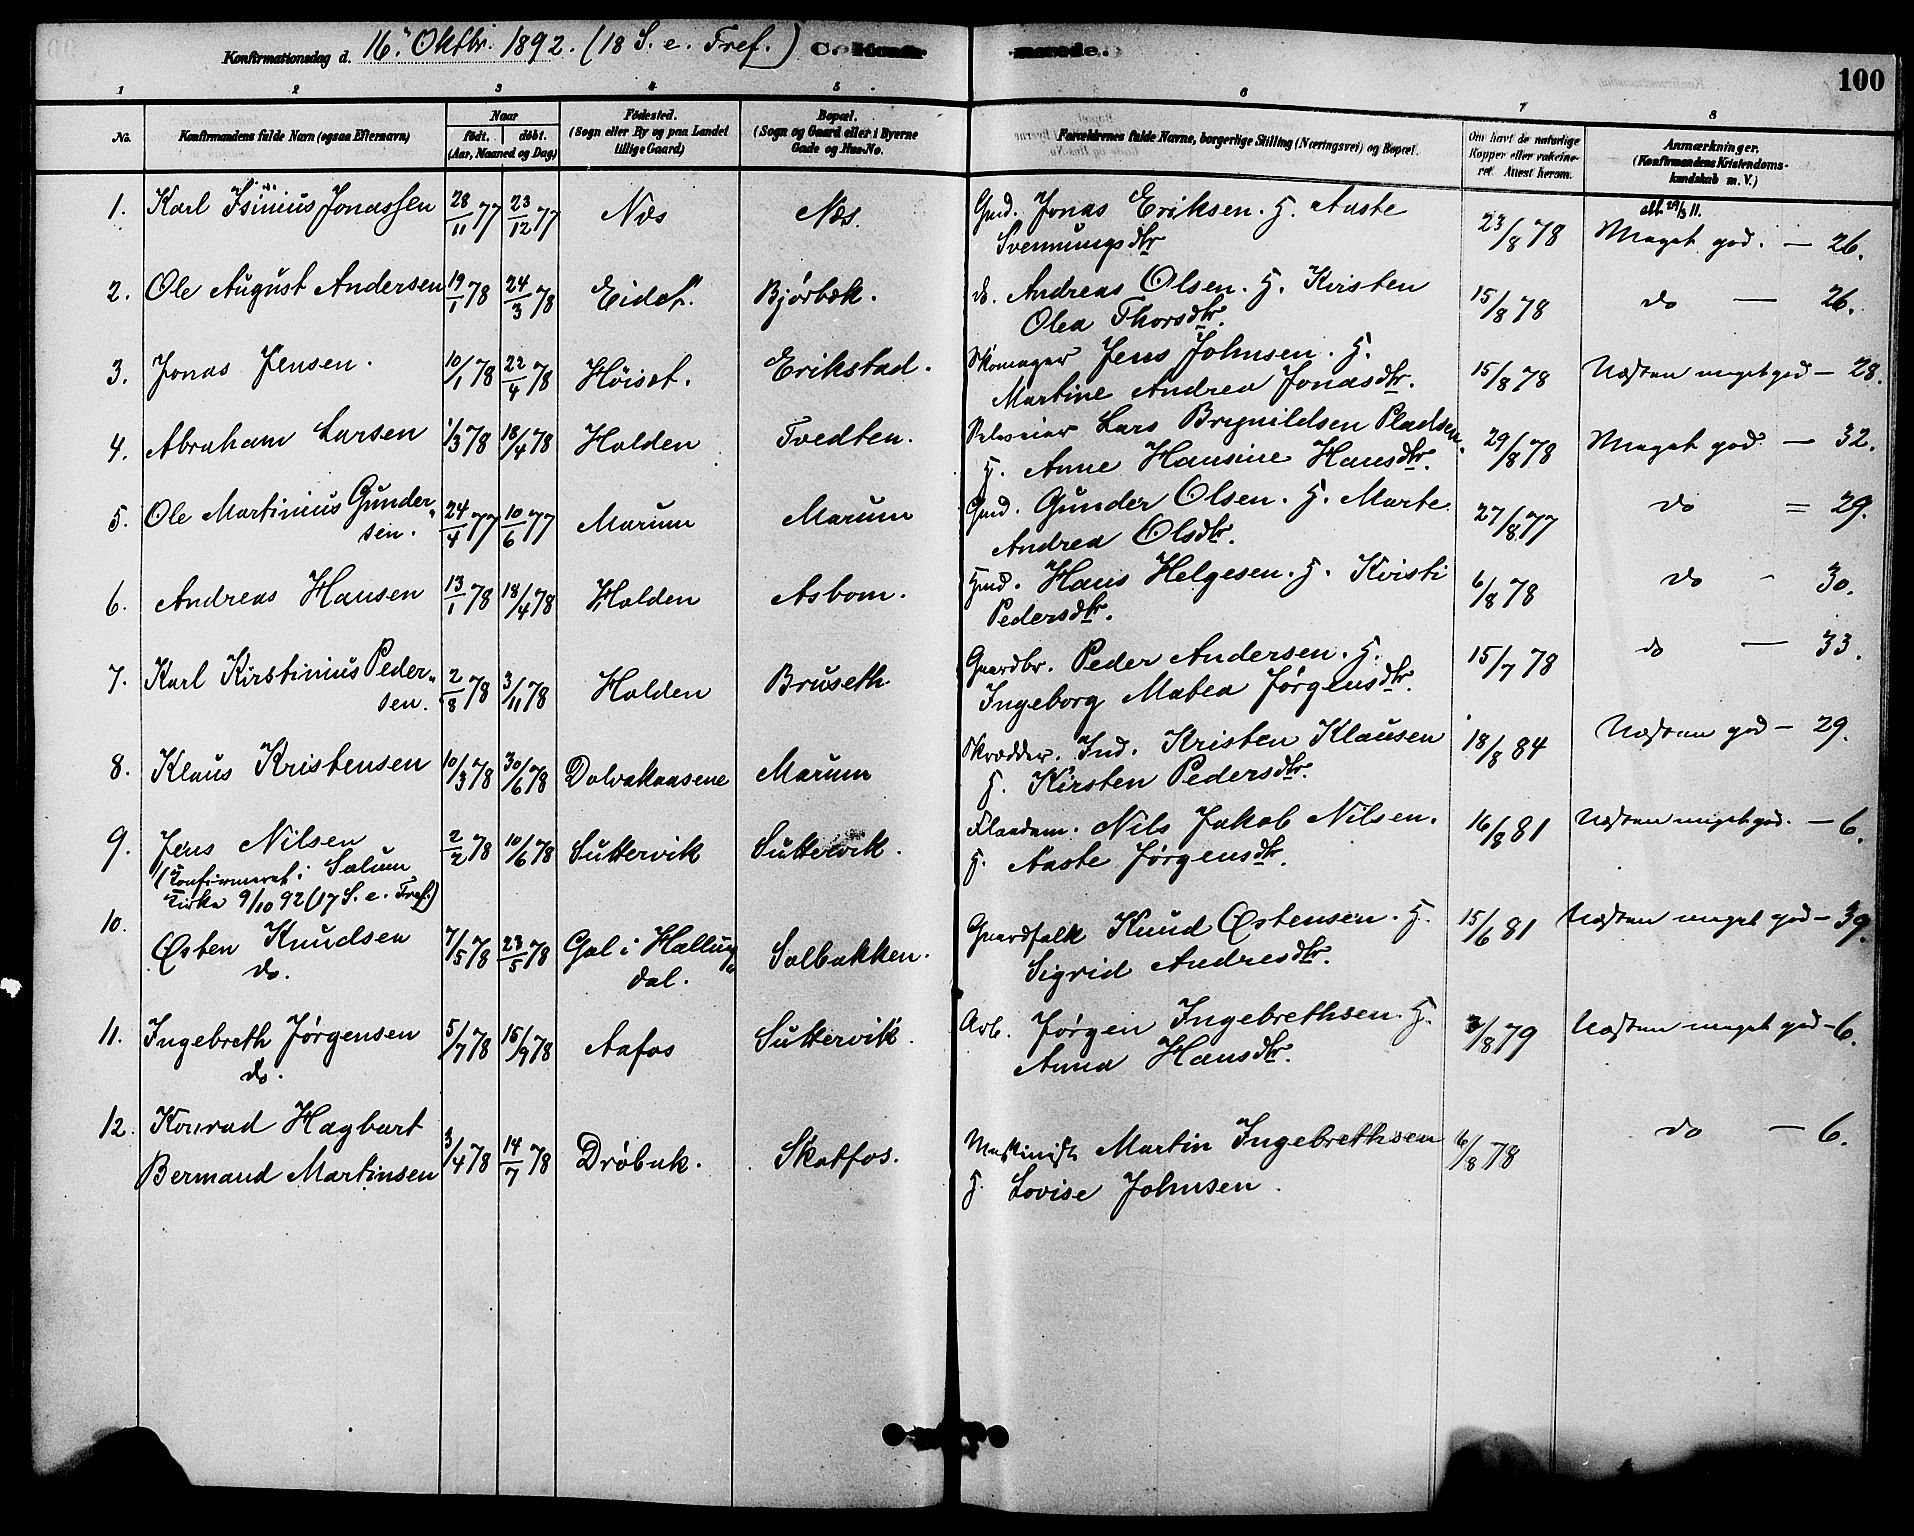 Konfirmationsdag d. 16. Oktbr. 1892. (18 S. e. Tref.)
100
1 2 3 4 5 6 7 8
No.
Konfirmandens fulde Navn (ogsaa Efternavn)
Naar
født. døbt.
(Aar, Maaned og Dag)
Fødested.
(Sogn eller By og paa Landet
tillige Gaard)
Bopæl.
(Sogn og Gaard eller i Byerne
Gade og Hus-No.
Forældrenes fulde Navne, borgerlige Stilling (Næringsvei) og Bopæl.
Om havt de naturlige
Kopper eller vakcine-
ret. Attest herom.
Anmærkninger.
(Konfirmandens Kristendoms-
kundskab m. V.)
1. Karl Isinius Jonassen 28/11 77 23/12 77 Næs Næs. Gmd. Jonas Eriksen. H. Aaste
Svennungsdtr 23/8 78 Meget god. — 26.
att. 29/3 11.
2. Ole August Andersen 19/1 78 24/3 78 Eidet. Bjørbæk. do. Andreas Olsen. H. Kirsten
Olea Thorsdtr. 15/8 78 do — 26.
3. Jonas Jensen. 10/1 78 22/4 78 Høiset. Erikstad. Skomager Jens Johnsen. H.
Martine Andrea Jonasdtr. 15/8 78 Næsten meget god — 28.
4. Abraham Larsen 1/3 78 18/4 78 Holden Tvedten. Selveier Lars Brynildsen Pladsen.
H. Anne Hansine Hansdtr. 29/8 78 Meget god — 32.
5. Ole Martinius Gunder-
sen. 24/4 77 10/6 77 Marum Marum Gmd. Gunder Olsen. H. Marte
Andrea Olsdtr. 27/8 77 do = 29.
6. Andreas Hansen 13/1 78 18/4 78 Holden Asbom. Hmd. Hans Helgesen. H. Kristi
Pedersdtr. 6/8 78 do - 30.
7. Karl Kirstinius Peder-
sen. 2/8 78 3/11 78 Holden Bruseth Gaardbr. Peder Andersen. H.
Ingeborg Matea Jørgensdtr. 15/7 78 do — 33.
8. Klaus Kristensen 10/3 78 30/6 78 Dalvakaasene Marum Skrædder. Ind. Kristen Klausen
H. Kirsten Pedersdtr. 18/8 84 Næsten god — 29.
9. Jens Nilsen 2/2 78 10/6 78 Suttervik Suttervik. Flaadem. Nils Jakob Nilsen.
(Konfirmeret i Solum
Kirke 9/10 92 (17 S. e. Tref.)
H. Aaste Jørgensdtr. 16/8 81 Næsten meget god. — 6.
10. Østen Knudsen
do. 7/5 78 23/5 78 Gol i Halling-
dal. Solbakken. Gaardfolk Knud Østensen. H.
Sigrid Andresdtr. 15/6 81 Næsten meget god — 39.
11. Ingebreth Jørgensen
do. 5/7 78 15/9 78 Aafos Suttervik. Arb. Jørgen Ingebrethsen. H.
Anna Hansdtr. 3/8 79 Næsten meget god — 6.
12. Konrad Hagbart
Bermand Martinsen 3/4 78 14/7 78 Drøbak. Skotfos. Maskinist Martin Ingebrethsen
H. Lovise Johnsen. 6/8 78 do — 6.